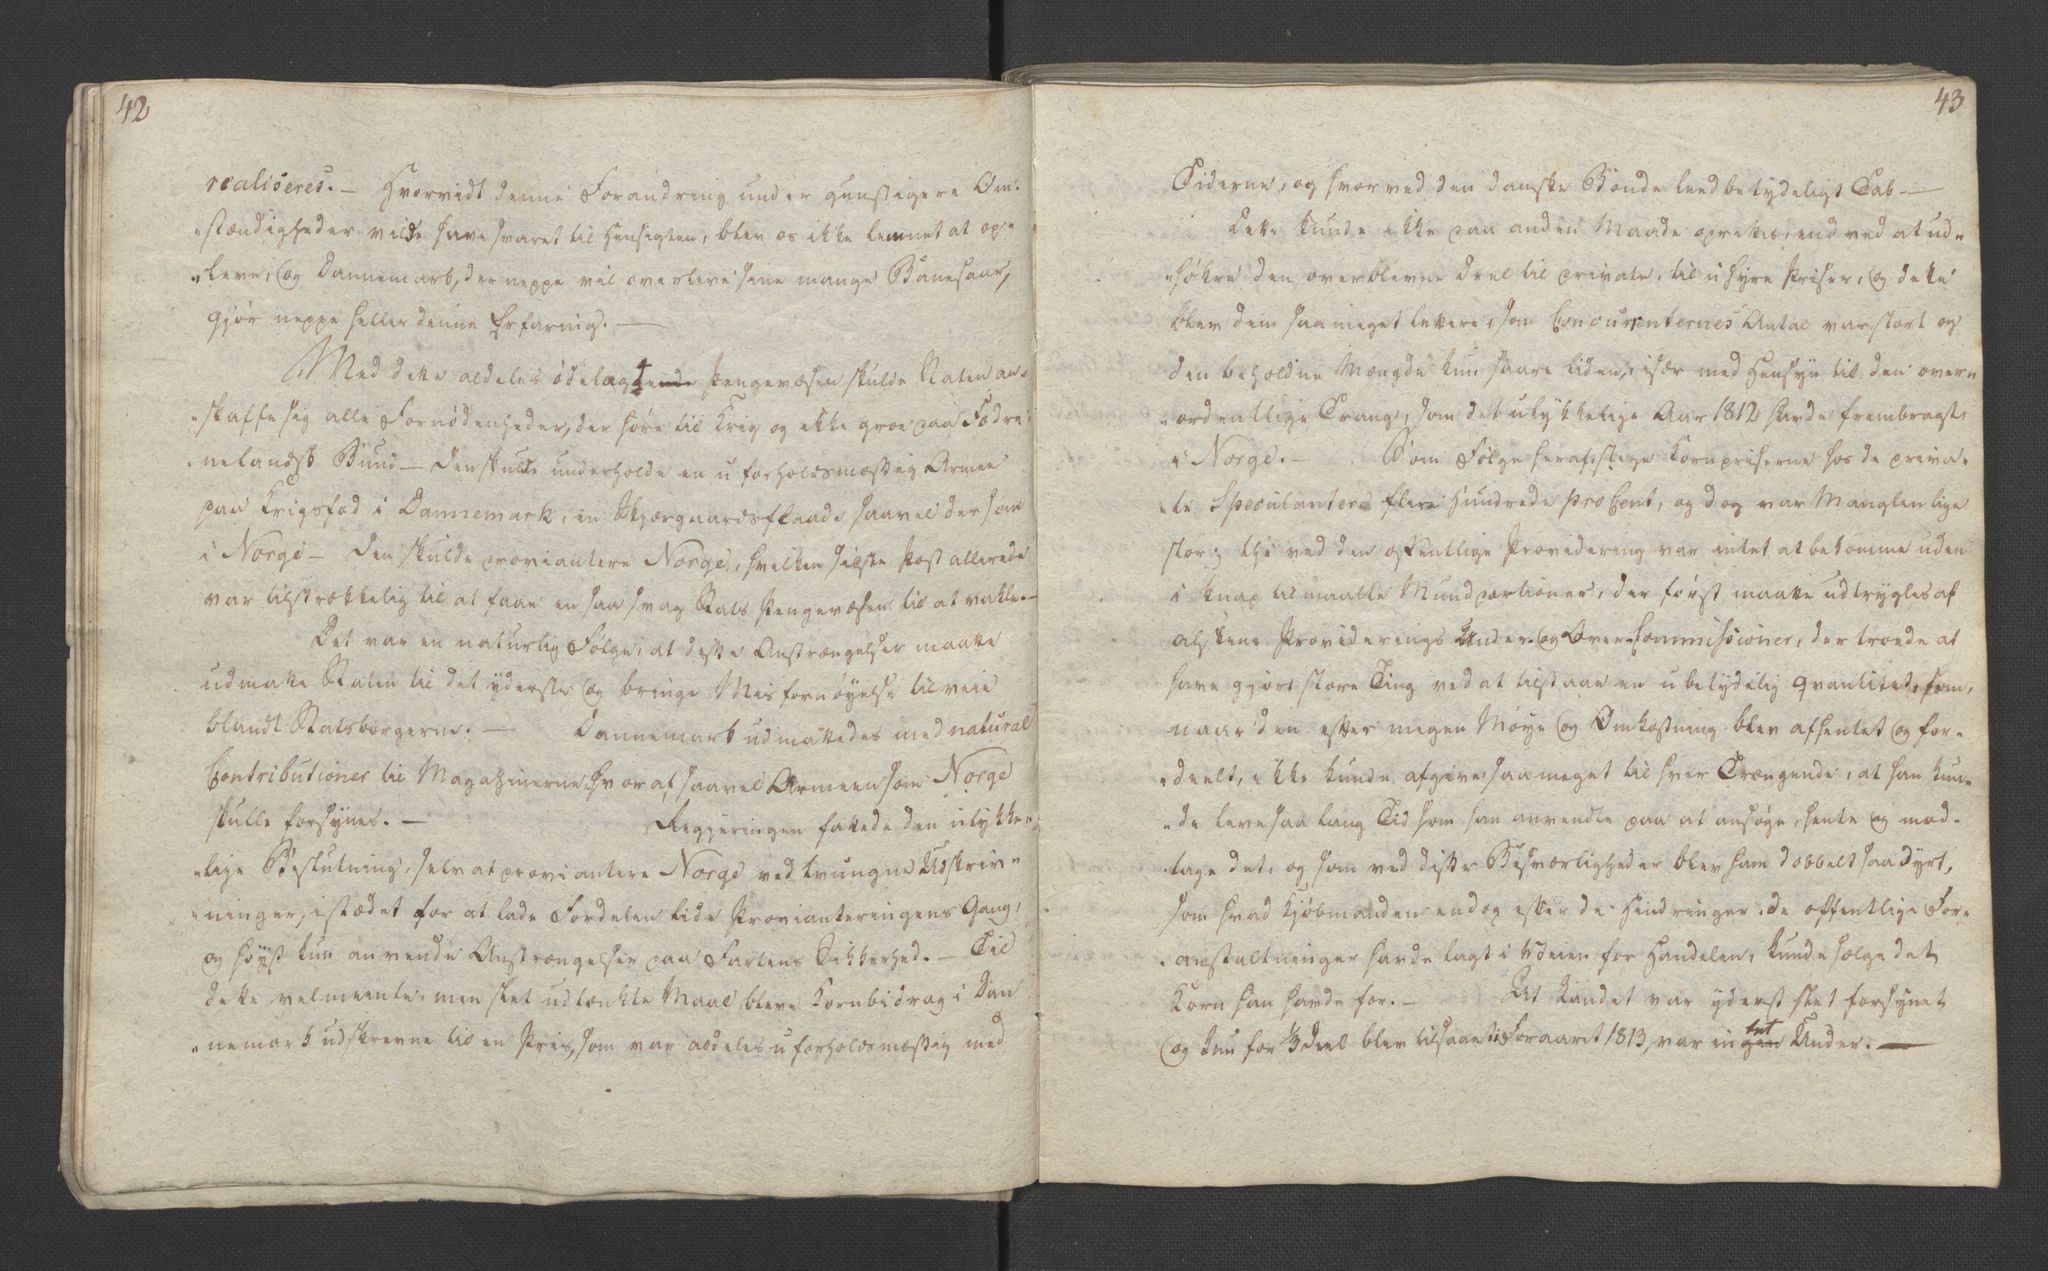 42
realiseres. — Hvorvidt denne Forandring under gunstigere Om-
„stændigheder vilde have svaret til Hensigten, blev os ikke levnet at op-
„leve, og Dannemark, der neppe vil overleve sine mange Banesaar,
gjør neppe heller denne Erfaring. —
Med dette aldeles ødelagte Pengevæsen skulde Staten an-
„skaffe sig alle Fornødenheder, der høre til Krig og ikke groe paa Fædre-
„nelandets Bund — Den skulde underholde en uforholdsmæssig Armee
paa Krigsfod i Dannemark, en Skjærgaardsflaade saavel der som
i Norge — Den skulde proviantere Norge, hvilken sidste Post allerede
var tilstrækkelig til at faae en saa svag Stats Pengevæsen til at vakle. —
Det var en naturlig Følge, at disse Anstrængelser maatte
udmatte Staten til det yderste og bringe Misfornøyelse tilveie
blandt Statsborgerne. — Dannemark udmattedes med natural
Contributioner til Magazinerne, hvoraf saavel Armeen som Norge
skulle forsynes. — Regjeringen fattede den ulykke-
„lige Beslutning, selv at proviantere Norge ved tvungne Udskriv-
„ninger, istædet for at lade Fordelen lede Provianteringens Gang,
og høyst kun anvende Anstrængelser paa Fartens Sikkerhed. — Til
dette velmeente, men slet udtænkte Maal bleve Kornbidrag i Dan
„nemark udskrevne til en Priis, som var aldeles uforholdsmæssig med
43
Tiderne, og hvorved den danske Bonde leed betydeligt Tab —
Dette kunde ikke paa anden Maade oprettes, end ved at ud-
„høkre den overblevne Deel til private, til uhyre Priser, og dette
blev dem saameget lettere, som Concurrenternes Antal var stort og
den beholdne Mængde kun saare liden, især med Hensyn til den over-
„ordentlige Trang, som det ulykkelige Aar 1812 havde frembragt
i Norge. — Som Følge heraf stege Kornpriserne hos de priva-
„te Speculanter flere Hundrede pro Cent, og dog var Manglen lige
stor; thi ved den offentlige Providering var intet at bekomme uden
i knap tilmaalte Mundportioner, der først maatte udtrygles af
alskens Providerings Under- og Over-Commissioner, der troede at
have gjort store Ting ved at tilstaae en ubetydelig Qvantitet, som,
naar den efter megen Møye og Omkostning blev afhentet og for-
„deelt, ikke kunde afgive saameget til hver Trængende, at han kun-
„de leve saa lang Tid som han anvendte paa at ansøge, hente og mod-
tage det, og som ved disse Besværligheder blev ham dobbelt saa dyrt,
som hvad Kjøbmanden endog efter de Hindringer, de offentlige For-
„anstaltninger havde lagt i Veien for Handelen, kunde sælge det
Korn han havde for. — At Landet var yderst slet forsynet
og kun for 1/3 Deel blev tilsaaet i Foraaret 1813, var intet Under. —